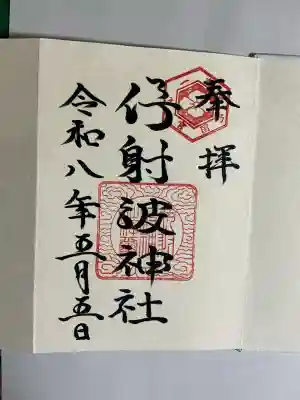 奉拝
伊射波神社
令和八年五月五日